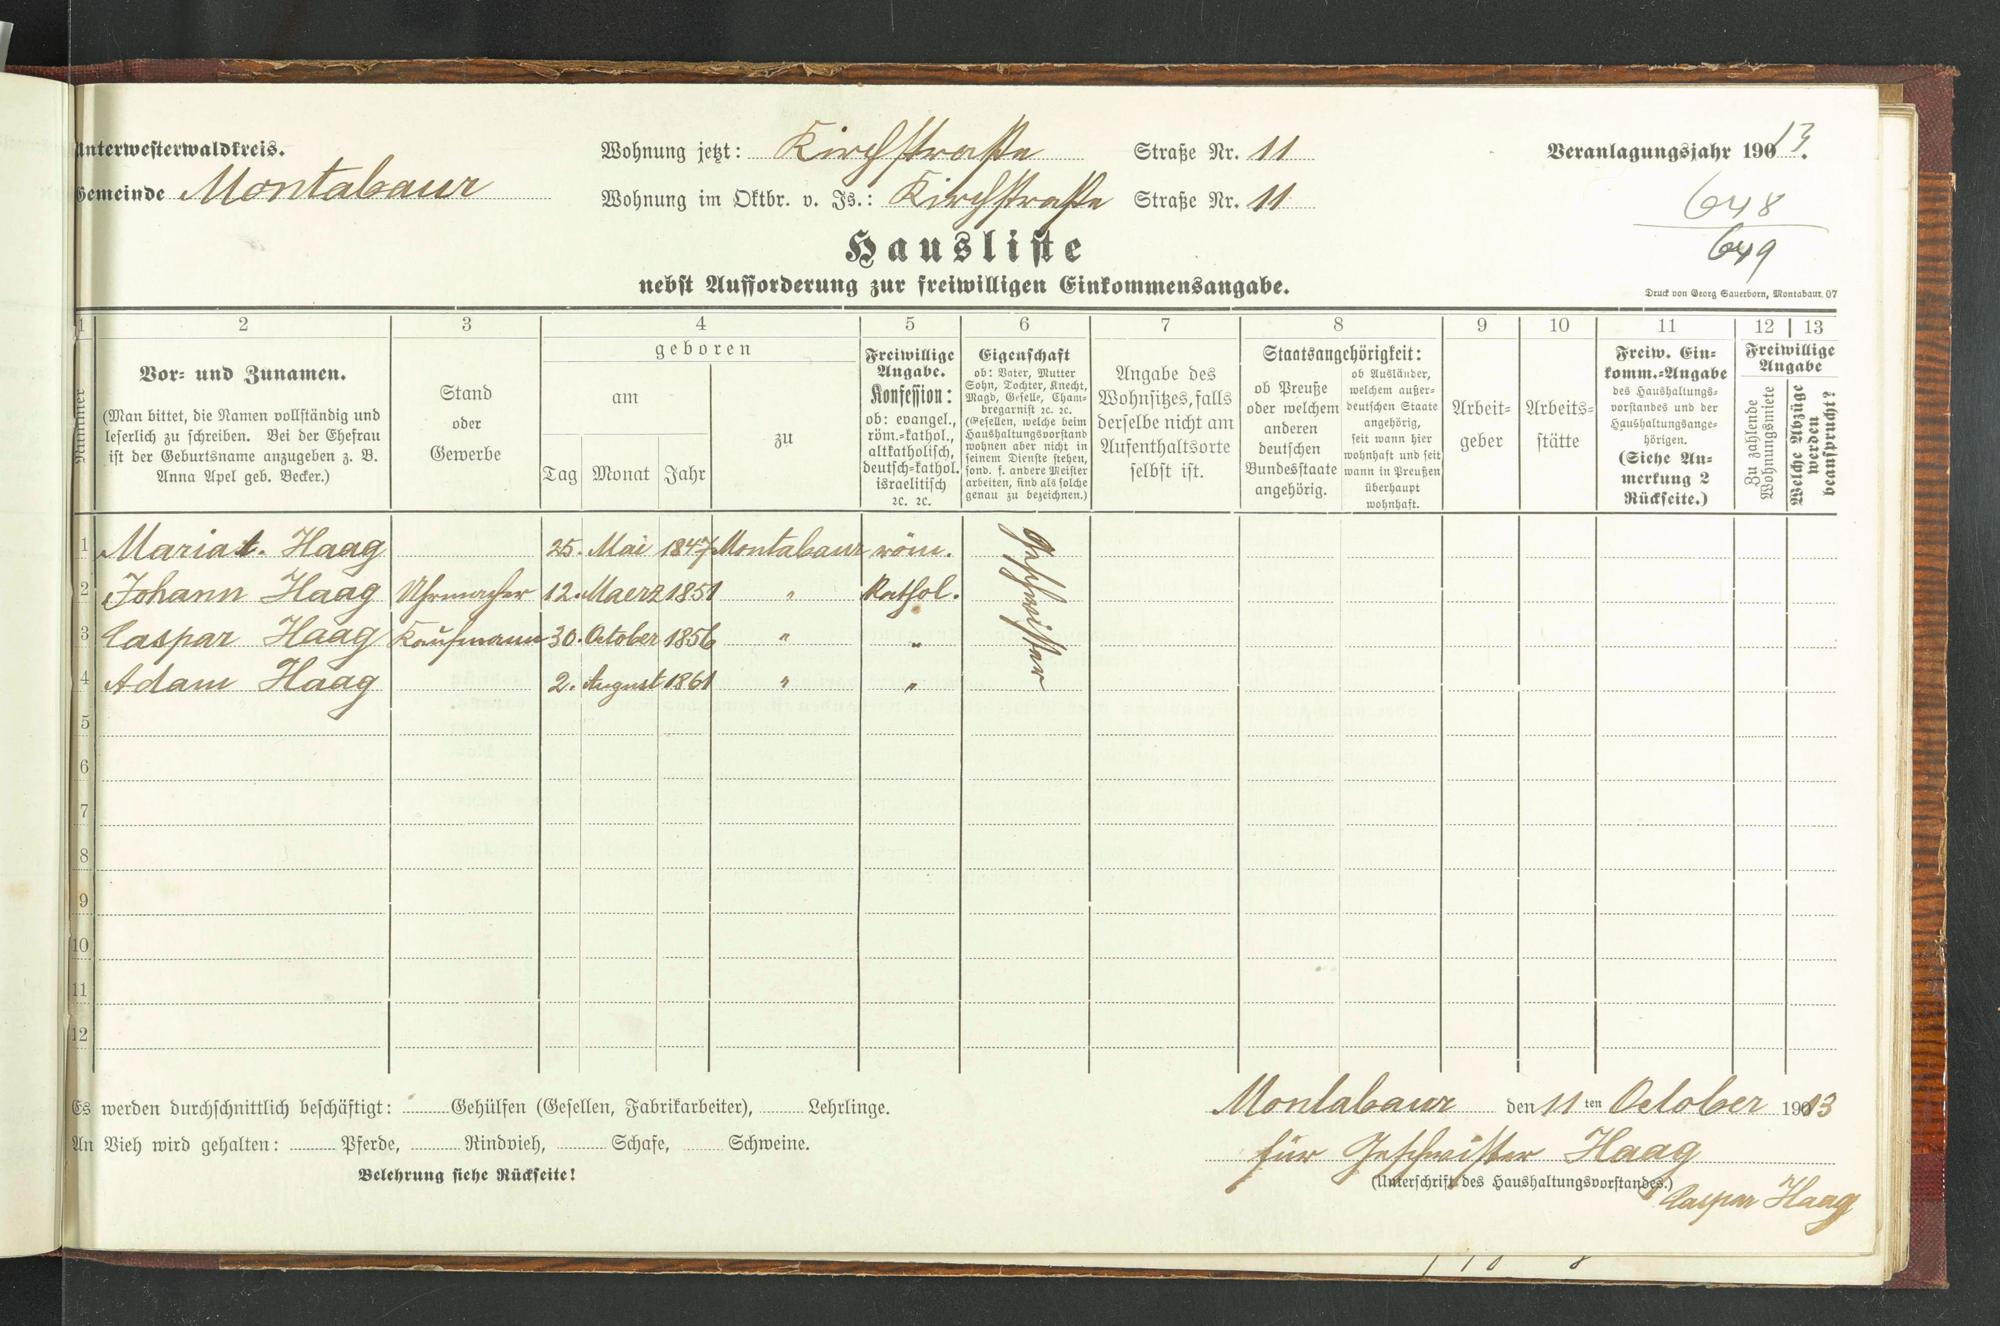 Unterwesterwaldkreis.
Gemeinde Montabaur
Wohnung jetzt: Kirchstraße Straße Nr. 11
Wohnung im Oktbr. v. Js.: Kirchstraße Straße Nr. 11
Veranlagungsjahr 1913.
648
649
Hausliste
nebst Aufforderung zur freiwilligen Einkommensangabe.
Druck von Georg Sauerborn, Montabaur. 07
1 2 3 4 5 6 7 8 9 10 11 12 13
Nummer
Vor- und Zunamen.
(Man bittet, die Namen vollständig und
leserlich zu schreiben. Bei der Ehefrau
ist der Geburtsname anzugeben z. B.
Anna Apel geb. Becker.)
Stand
oder
Gewerbe
geboren
am
Tag Monat Jahr
zu
Freiwillige
Angabe.
Konfession:
ob: evangel.,
röm.-kathol.,
altkatholisch,
deutsch-kathol.
israelitisch
ꝛc. ꝛc.
Eigenschaft
ob: Vater, Mutter
Sohn, Tochter, Knecht,
Magd, Geselle, Cham-
bregarnist ꝛc. ꝛc.
(Gesellen, welche beim
Haushaltungsvorstand
wohnen aber nicht in
seinem Dienste stehen,
sond. f. andere Meister
arbeiten, sind als solche
genau zu bezeichnen.)
Angabe des
Wohnsitzes, falls
derselbe nicht am
Aufenthaltsorte
selbst ist.
Staatsangehörigkeit:
ob Preuße
oder welchem
anderen
deutschen
Bundesstaate
angehörig.
ob Ausländer,
welchem außer-
deutschen Staate
angehörig,
seit wann hier
wohnhaft und seit
wann in Preußen
überhaupt
wohnhaft.
Arbeit-
geber
Arbeits-
stätte
Freiw. Ein-
komm.-Angabe
des Haushaltungs-
vorstandes und der
Haushaltungsange-
hörigen.
(Siehe An-
merkung 2
Rückseite.)
Freiwillige
Angabe
Zu zahlende
Wohnungsmiete
Welche Abzüge
werden
beansprucht?
1 Maria. Haag 25. Mai 1847 Montabaur röm. Geschwister
2 Johann Haag Uhrmacher 12. Maerz 1851 " Kathol.
3 Caspar Haag Kaufmann 30. October 1856 " "
4 Adam Haag 2. August 1861 " "
5
6
7
8
9
10
11
12
Es werden durchschnittlich beschäftigt: Gehülfen (Gesellen, Fabrikarbeiter), Lehrlinge.
An Vieh wird gehalten: Pferde, Rindvieh, Schafe, Schweine.
Belehrung siehe Rückseite!
Montabaur den 11 ten October 1913
für Geschwister Haag
(Unterschrift des Haushaltungsvorstandes.)
Caspar Haag